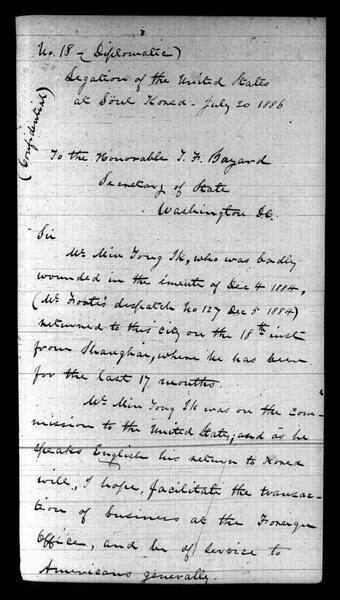 No. 18 - (Diplomatic)
Legation of the United States
at Söul Korea - July 20 1886
(Confidential)
To the Honorable T. F. Bayard
Secretary of State
Washington D.C.
Sir
Mr Min Yong Ik, who was badly
wounded in the émeute of Dec 4 1884,
(Mr Foote's despatch No 127 Dec 5 1884)
returned to this city on the 18th inst
from Shanghai, where he has been
for the last 17 months.
Mr Min Yong Ik was on the com-
mission to the United States, and as he
speaks English his return to Korea
will, I hope, facilitate the transac-
tion of business at the Foreign
Office, and be of service to
Americans generally.